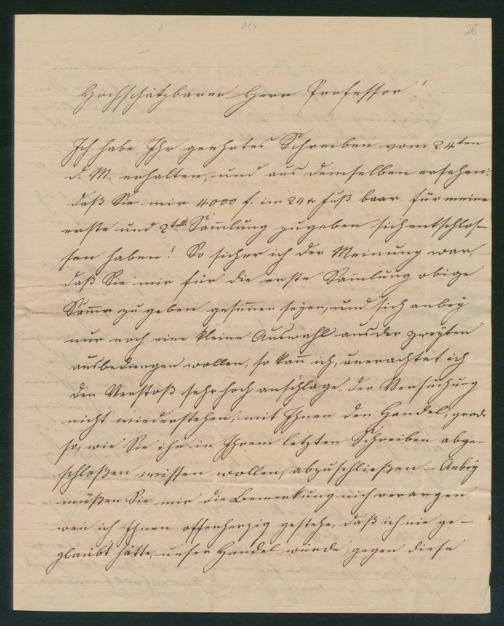 10
26
Hochschätzbarer Herr Professor!
Ich habe Ihr geehrtes Schreiben vom 24ten
d. M. erhalten, und aus demselben ersehen,
daß Sie mir 4000 f. im 24 r fuß baar für meine
erste und 2te Sammlung zugeben sich entschlos-
sen haben! So sicher ich der Meinung war,
daß Sie mir für die erste Samlung obige
Summe zu geben gesonnen seyen, und sich anbey
nur noch eine kleine Auswahl aus der zweyten
ausbedingen wollen, so kan ich, unerachtet ich
den Verstoß sehr hoch anschlage, der Versuchung
nicht wiederstehen, mit Ihnen den Handel, grad
so, wie Sie ihn in Ihrem letzten Schreiben abge-
schloßen wissen wollen, abzuschließen – Anbey
müßen Sie mir die Bemerkung nicht verargen,
wen ich Ihnen offenherzig gestehe, daß ich nie ge-
glaubt hätte, unser Handel würde gegen diese